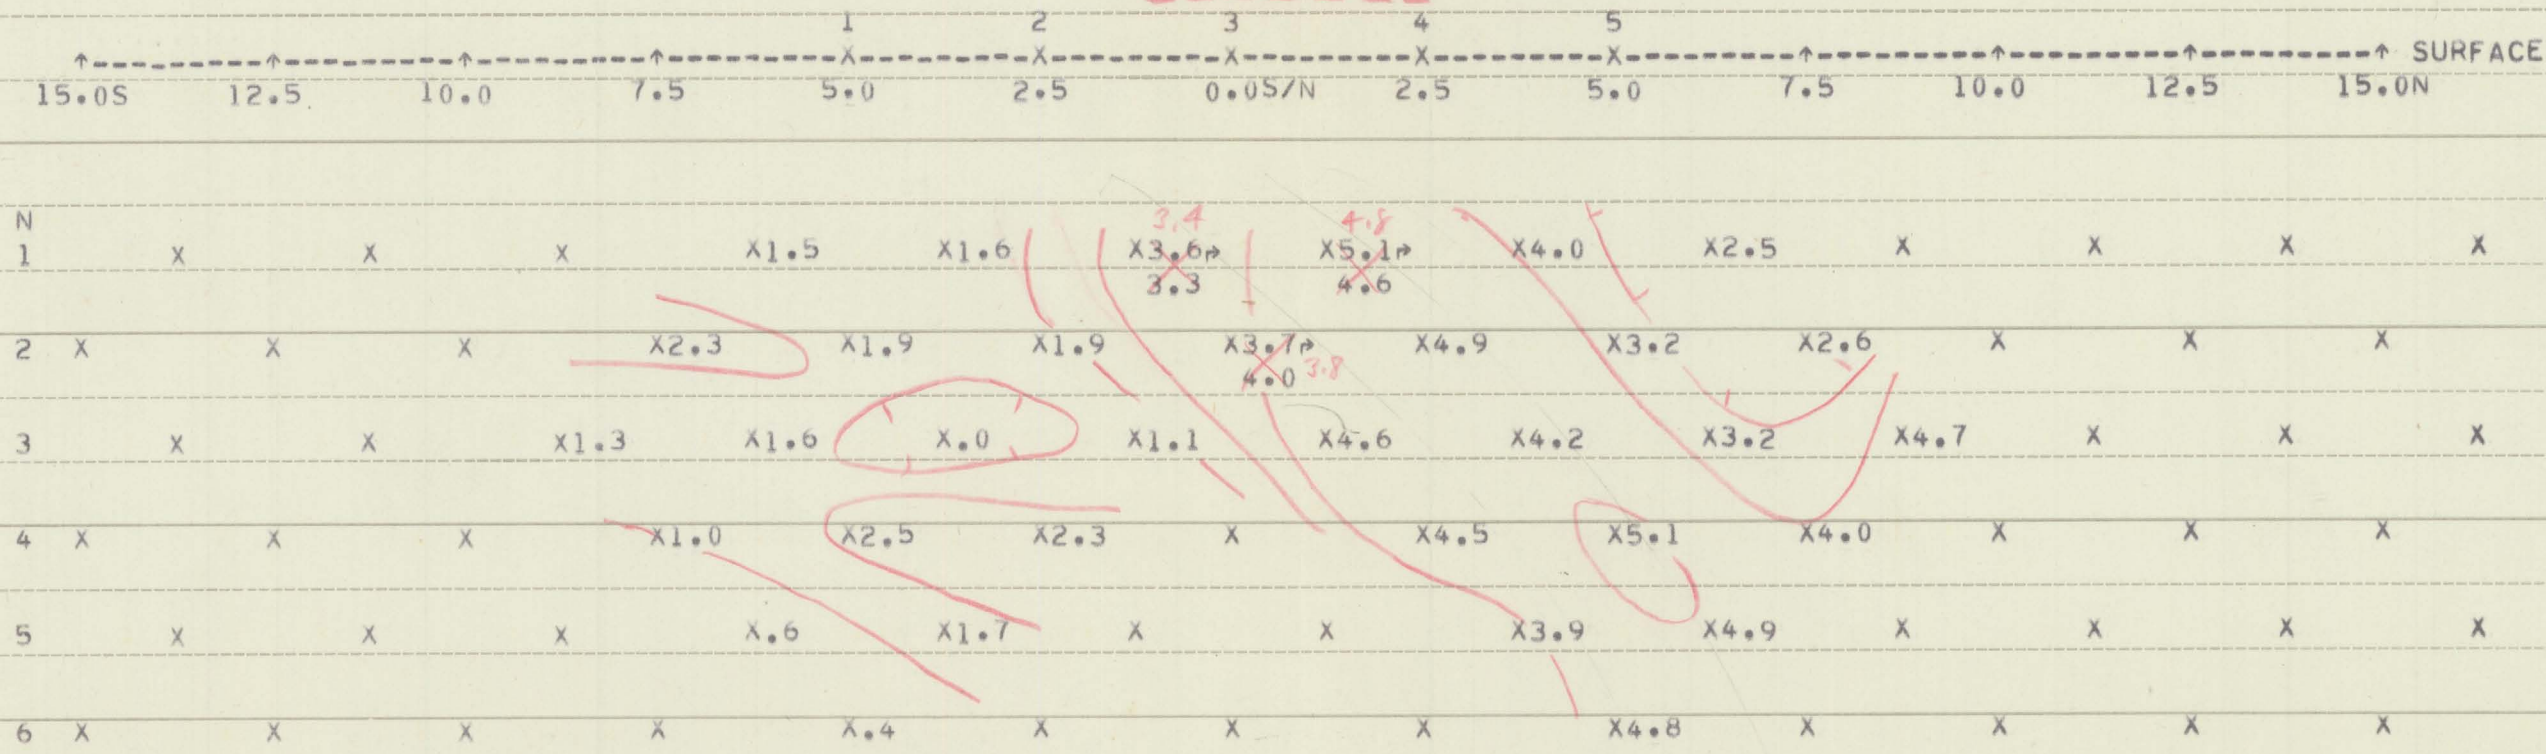 1 2 3 4 5
↑--------↑--------↑--------↑--------X--------X--------X--------X--------X--------↑--------↑--------↑--------↑ SURFACE
15.0S 12.5 10.0 7.5 5.0 2.5 0.0S/N 2.5 5.0 7.5 10.0 12.5 15.0N
N
3.4 4.8
1 X X X X1.5 X1.6 X3.6↱ X5.1↱ X4.0 X2.5 X X X X
3.3 4.6
2 X X X X2.3 X1.9 X1.9 X3.7↱ X4.9 X3.2 X2.6 X X X
4.0 3.8
3 X X X1.3 X1.6 X.0 X1.1 X4.6 X4.2 X3.2 X4.7 X X X
4 X X X X1.0 X2.5 X2.3 X X4.5 X5.1 X4.0 X X X
5 X X X X.6 X1.7 X X X3.9 X4.9 X X X X
6 X X X X X.4 X X X X4.8 X X X X